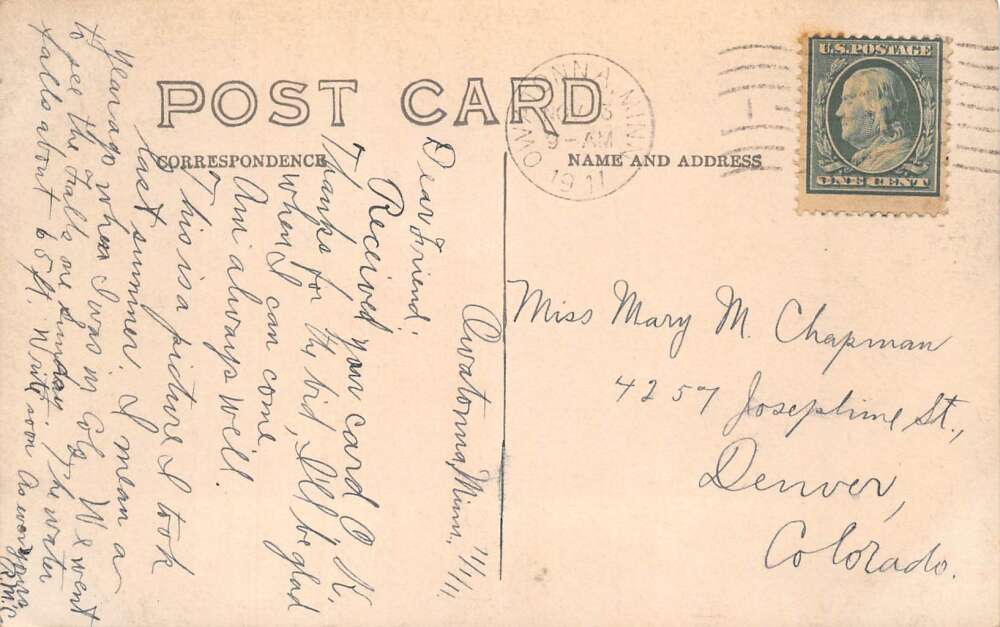 POST CARD
CORRESPONDENCE
NAME AND ADDRESS
OWATONNA, MINN.
9-AM
1911
U.S. POSTAGE
ONE CENT
Owatonna, Minn, 11/1/11,
Dear Friend:
Received your card O.K.
Thanks for thy bid, I'll be glad
when I can come.
Am always well.
This is a picture I took
last summer. I mean a
year ago when I was in Colo. We went
to see the Falls one Sunday, The water
falls about 65 ft. Write soon
As ever yours
Miss Mary M. Chapman
4257 Josephine St.,
Denver,
Colorado.